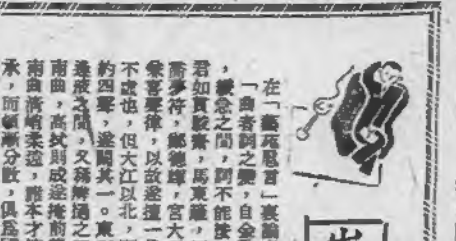 在「藝苑巵言」裏論
「曲者詞之變，自金
，緩急之間，詞不能按
君如貫酸齋，馬東籬，
喬夢符，鄭德輝，宮大
兼喜聲律，以故遂擅一
不虛也，但大江以北，
約四聲，遂闕其一。東
逢掖之間，又稀辨撾之
南曲，高拭則成遂掩前
南曲清峭柔遠，雖本才
承，而頓漸分教，俱爲國